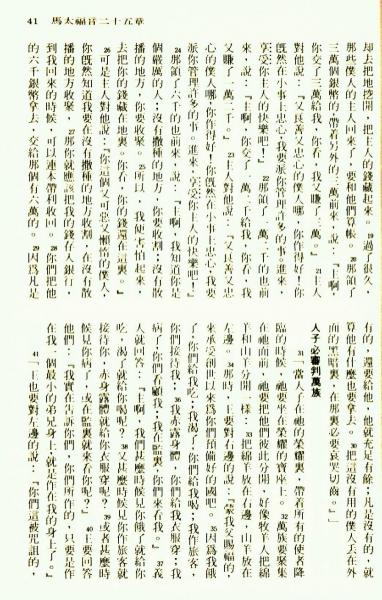 41　馬太福音二十五章
却去把地挖開，把主人的錢藏起來。19過了很久，
那些僕人的主人回來了，要和他們算帳。20那領了
三萬個銀幣的，帶着另外的三萬前來，說：『主啊，
你交了三萬給我，你看，我又賺了三萬。』21主人
對他說：『又良善又忠心的僕人哪，你作得好！你
既然在小事上忠心，我要派你管理許多的事。進來，
享受你主人的快樂吧！』22那領了一萬二千的也前
來，說：『主啊，你交了一萬二千給我，你看，我
又賺了一萬二千。』23主人對他說：『又良善又忠
心的僕人哪，你作得好！你既然在小事上忠心，我要
派你管理許多的事。進來，享受你主人的快樂吧！』
24那領了六千的也前來，說：『主啊，我知道你是
個嚴厲的人；沒有撒種的地方，你要收割；沒有散
播的地方，你要收聚。25所以，我便害怕起來，
去把你的錢藏在地裏。你看，你的錢還在這裏。』
26可是主人對他說：『你這個又可惡又懶惰的僕人，
你既然知道我要在沒有撒種的地方收割，在沒有散
播的地方收聚，27那你就應該把我的錢存入銀行，
到我回來的時候，可以連本帶利收回。28你們把他
的六千銀幣拿去，交給那個有六萬的。29因爲凡是
有的，還要給他，他就充足有餘；凡是沒有的，就
算他有什麼也要拿去。30把這沒有用的僕人丢在外
面的黑暗裏，在那裏必要哀哭切齒。』」
人子必審判萬族
31「當人子在祂的榮耀裏，帶着所有的使者降
臨的時候，祂要坐在榮耀的寶座上。32萬族要聚集
在祂面前，祂要把他們彼此分開，好像牧羊人把綿
羊和山羊分開一樣：33把綿羊放在右邊，山羊放在
左邊。34那時，王要對右邊的說：『蒙我父賜福的，
來承受創世以來爲你們預備好的國吧。35因爲我餓
了，你們給我吃；我渴了，你們給我喝；我作旅客，
你們接待我；36我赤身露體，你們給我衣服穿；我
病了，你們看顧我；我在監裏，你們來看我。』37義
人就回答：『主啊，我們甚麼時候見你餓了就給你
吃，渴了就給你喝呢？38又甚麼時候見你作旅客就
接待你，赤身露體就給你衣服穿呢？39或者甚麼時
候見你病了，或在監裏就來看你呢？』40王要回答
他們：『我實在告訴你們，你們所作的，只要是作
在我一個最小的弟兄身上，就是作在我的身上了。』
41「王也要對左邊的說：『你們這被咒詛的，